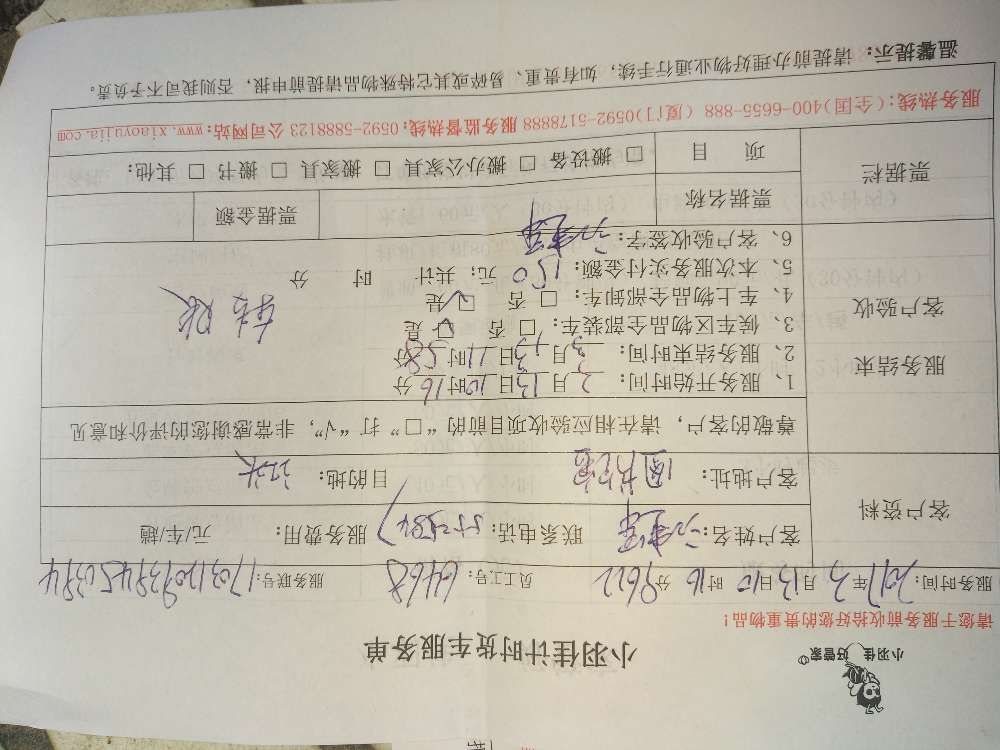 小羽佳 好管家
小羽佳计时货车服务单
请您于服务前收拾好您的贵重物品！
服务时间：2017年3月13日10时16分 9622 员工号：6468 服务联号：
客户资料
客户姓名： 联系电话： 服务费用： 元/车/趟
客户地址：图书馆 目的地：
尊敬的客户，请在相应验收项目前的“□”打“√”，非常感谢您的评价和意见
服务结束
客户验收
1、服务开始时间：3月13日10时16分
2、服务结束时间：3月13日11时58分
3、候车区物品全部装车：□ 否 □ 是
4、车上物品全部卸车：□ 否 □ 是
5、本次服务实付金额：150元；共计 时 分
6、客户验收签字：
票据栏
票据名称 票据金额
项 目 □ 搬设备 □ 搬办公家具 □ 搬家具 □ 搬书 □ 其他：
服务热线：(全国)400-6655-888 (厦门)0592-5178888 服务监督热线：0592-5888123 公司网站：www.xiaoyujia.com
温馨提示：请提前办理好物业通行手续，如有贵重、易碎或其它特殊物品请提前申报，否则我司不予负责。